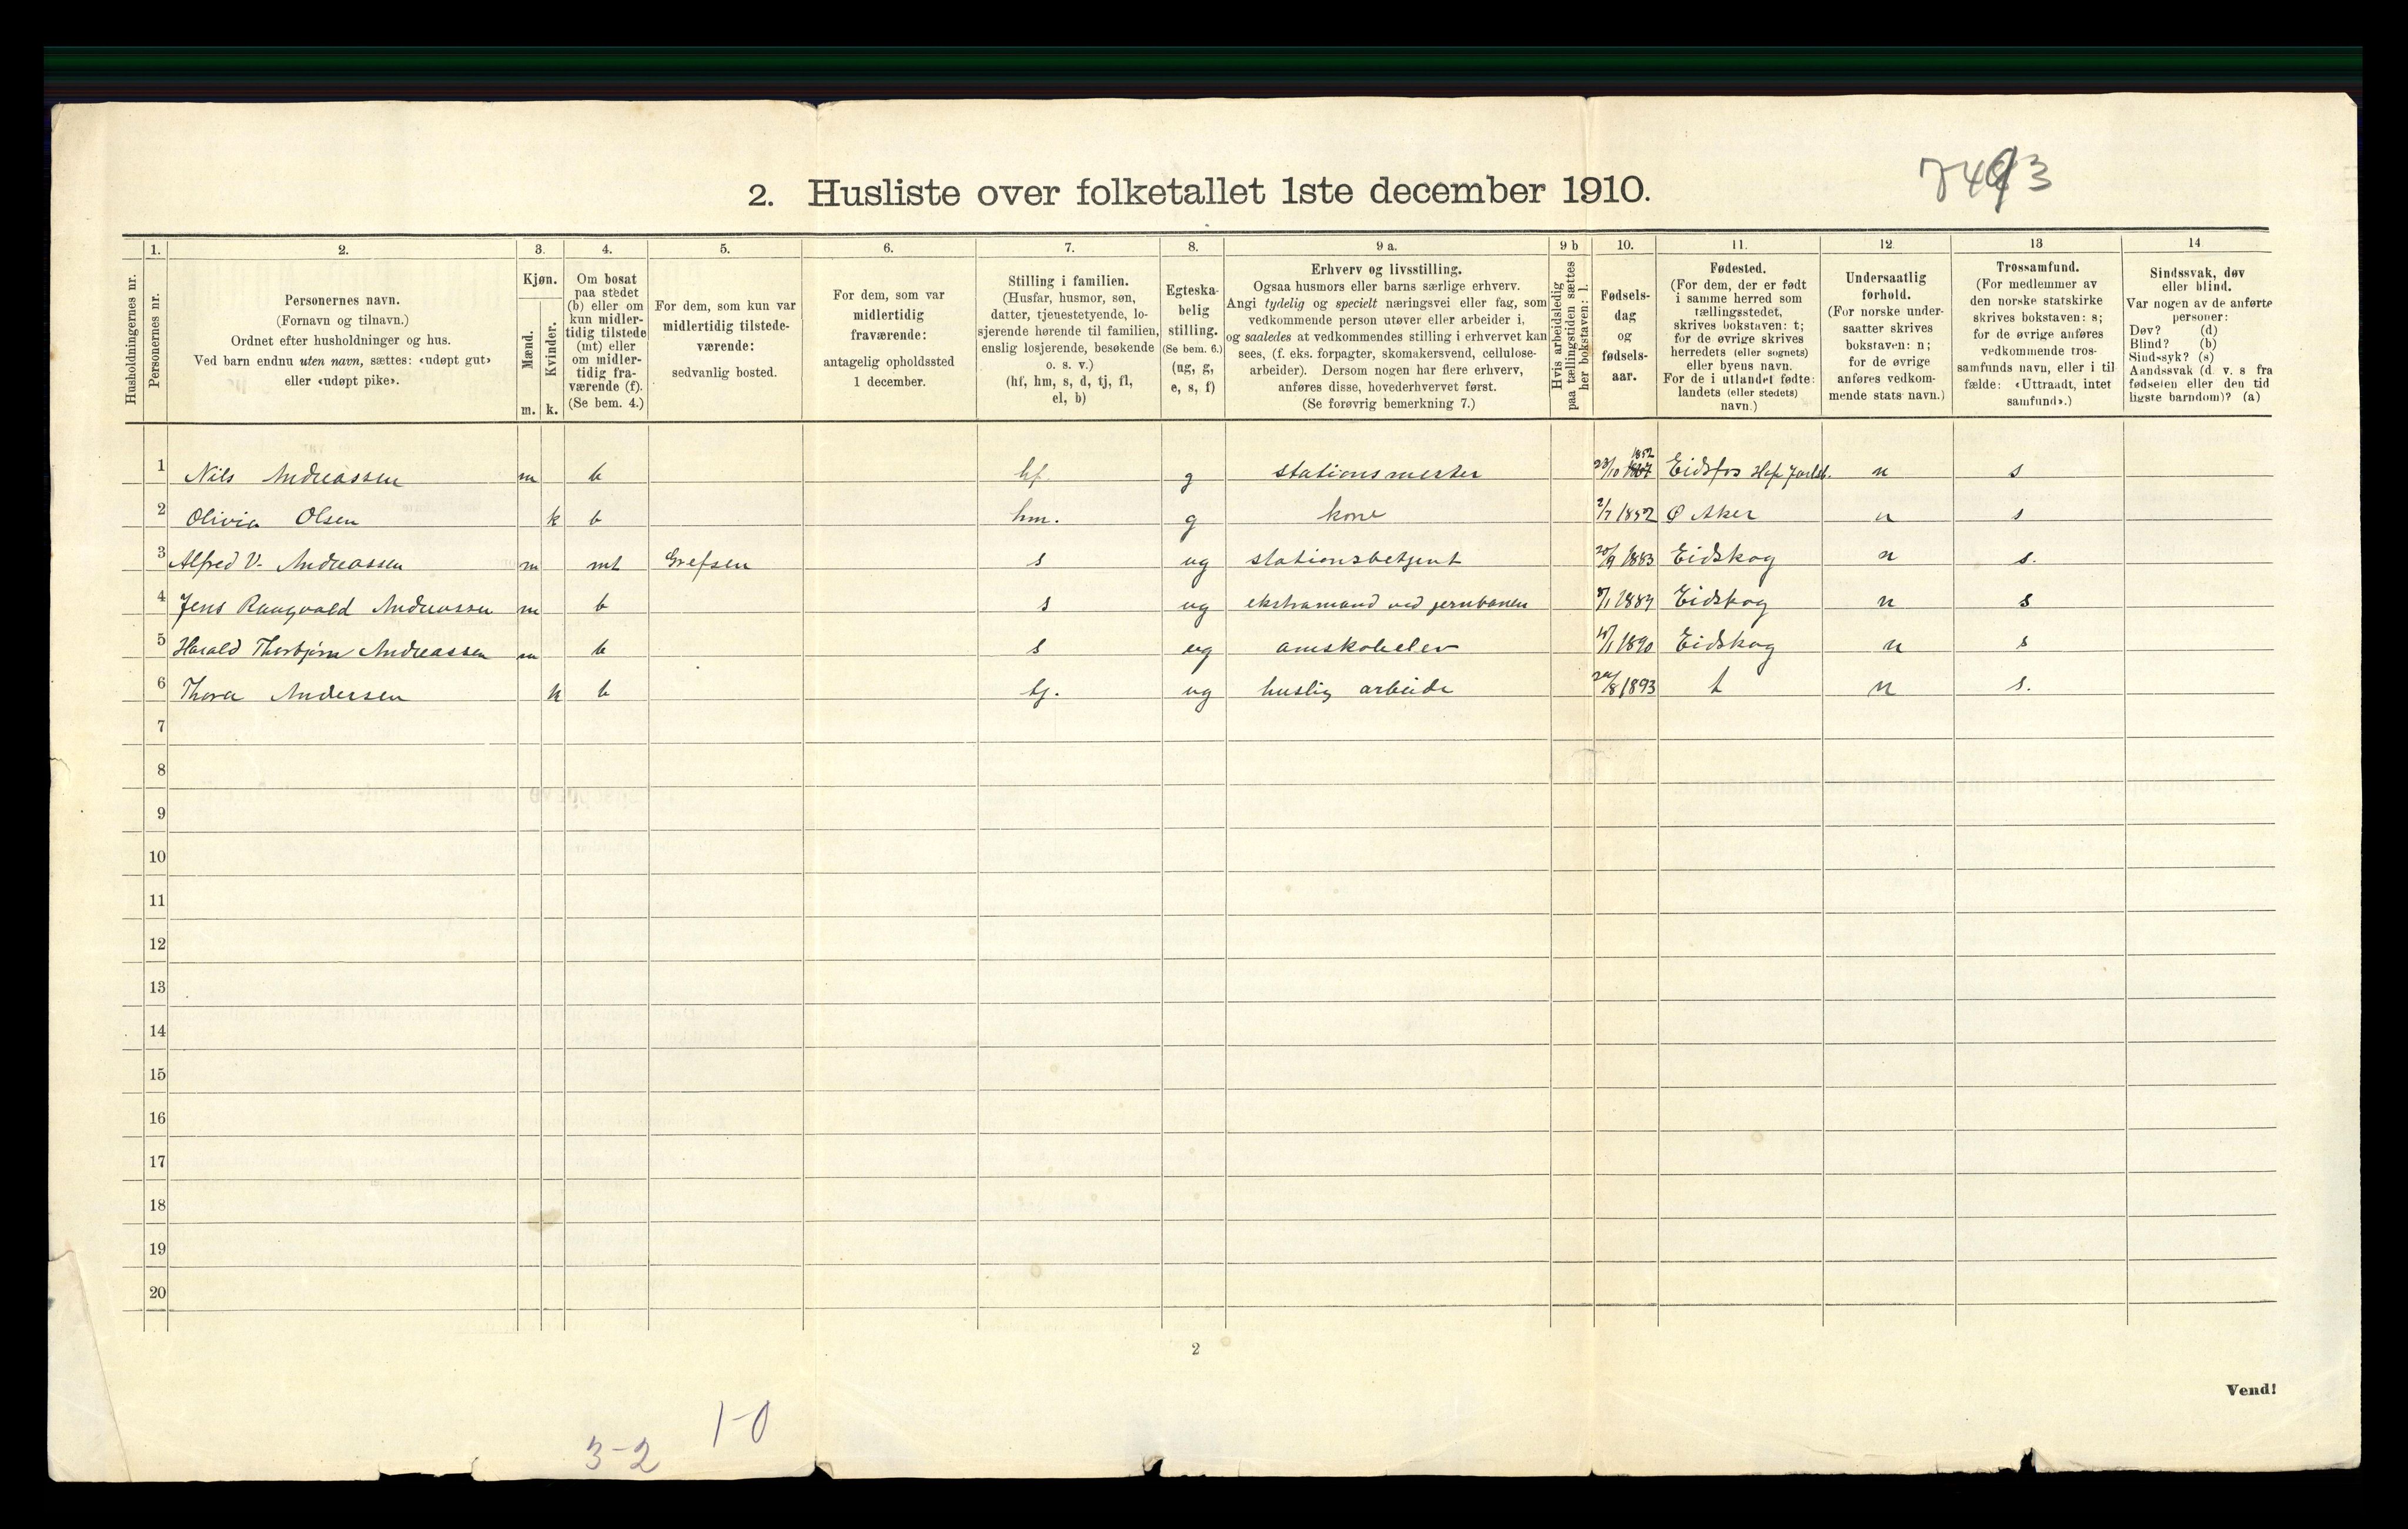 2. Husliste over folketallet 1ste december 1910.
1. 2. 3. 4. 5. 6. 7. 8. 9 a. 9 b 10. 11. 12. 13 14
Husholdningernes nr.
Personernes nr.
Personernes navn.
(Fornavn og tilnavn.)
Ordnet efter husholdninger og hus.
Ved barn endnu uten navn, sættes: «udøpt gut»
eller «udøpt pike».
Kjøn.
Mænd.
Kvinder.
m. k.
Om bosat
paa stedet
(b) eller om
kun midler-
tidig tilstede
(mt) eller
om midler-
tidig fra-
værende (f).
(Se bem. 4.)
For dem, som kun var
midlertidig tilstede-
værende:
sedvanlig bosted.
For dem, som var
midlertidig
fraværende:
antagelig opholdssted
1 december.
Stilling i familien.
(Husfar, husmor, søn,
datter, tjenestetyende, lo-
sjerende hørende til familien,
enslig losjerende, besøkende
o. s. v.)
(hf, hm, s, d, tj, fl,
el, b)
Egteska-
belig
stilling.
(Se bem. 6.)
(ug, g,
e, s, f)
Erhverv og livsstilling.
Ogsaa husmors eller barns særlige erhverv.
Angi tydelig og specielt næringsvei eller fag, som
vedkommende person utøver eller arbeider i,
og saaledes at vedkommendes stilling i erhvervet kan
sees, (f. eks. forpagter, skomakersvend, cellulose-
arbeider). Dersom nogen har flere erhverv,
anføres disse, hovederhvervet først.
(Se forøvrig bemerkning 7.)
Hvis arbeidsledig
paa tællingstiden sættes
her bokstaven: l.
Fødsels-
dag
og
fødsels-
aar.
Fødested.
(For dem, der er født
i samme herred som
tællingsstedet,
skrives bokstaven: t;
for de øvrige skrives
herredets (eller sognets)
eller byens navn.
For de i utlandet fødte:
landets (eller stedets)
navn.)
Undersaatlig
forhold.
(For norske under-
saatter skrives
bokstaven: n;
for de øvrige
anføres vedkom-
mende stats navn.)
Trossamfund.
(For medlemmer av
den norske statskirke
skrives bokstaven: s;
for de øvrige anføres
vedkommende tros-
samfunds navn, eller i til
fælde: «Uttraadt, intet
samfund».)
Sindssvak, døv
eller blind.
Var nogen av de anførte
personer:
Døv? (d)
Blind? (b)
Sindssyk? (s)
Aandssvak (d. v. s fra
fødselen eller den tid
ligste barndom)? (a)
1 Nils Andreassen m b hf g stationsmester 1852 Eidsfos Hof Jarlsb. n s
2 Olivia Olsen k b hm. g kone 2/7 1852 Ø Aker n s
3 Alfred V. Andreassen m mt Grefsen s ug stationsbetjent 20/9 1883 Eidskog n s.
4 Jens Raagvald Andreassen m b s ug ekstramand ved jernbanen Eidskog n s
5 Harald Thorbjørn Andreassen m b s ug amskolelev 1890 Eidskog n s
6 Thora Andersen k b tj. ug huslig arbeide 1893 t n s.
7
8
9
10
11
12
13
14
15
16
17
18
19
20
2
Vend!
1-0
3-2